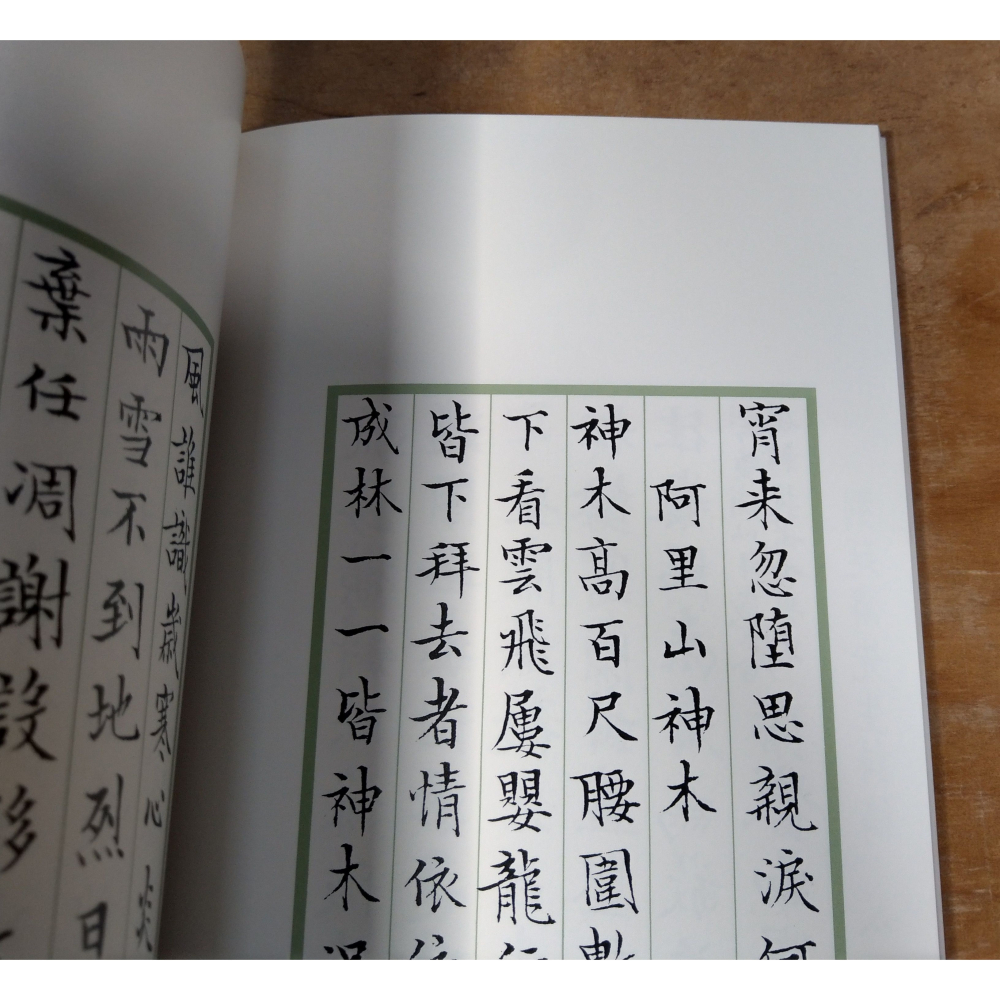 宵来忽堕思親淚何
阿里山神木
神木高百尺腰圍數
下看雲飛屢嬰龍
皆下拜去者情依依
成林一一皆神木
風誰識歲寒心炎
雨雪不到地烈日
棄任凋謝設